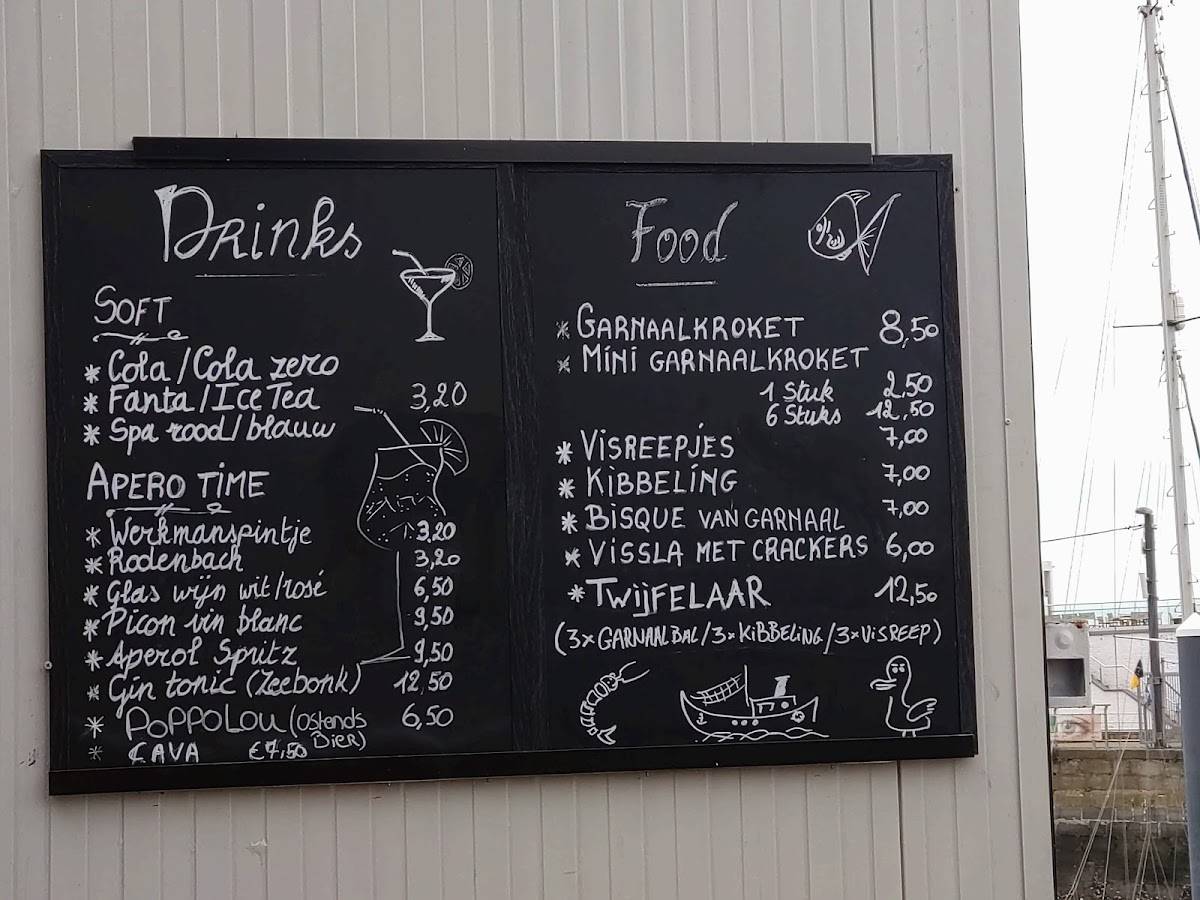 Drinks
SOFT
* Cola/Cola zero
* Fanta/Ice Tea 3,20
* Spa rood/blauw
APERO TIME
* Werkmanspintje 3,20
* Rodenbach 3,20
* Glas wijn wit/rosé 6,50
* Picon vin blanc 9,50
* Aperol Spritz 9,50
* Gin tonic (Zeebonk) 12,50
* POPPOLOU (Ostends Bier) 6,50
* CAVA €7,50
Food
* GARNAALKROKET 8,50
* MINI GARNAALKROKET
1 Stuk 2,50
6 Stuks 12,50
* VISREEPJES 7,00
* KIBBELING 7,00
* BISQUE VAN GARNAAL 7,00
* VISSLA MET CRACKERS 6,00
* TWIJFELAAR 12,50
(3x GARNAALBAL/3x KIBBELING/3x VISREEP)